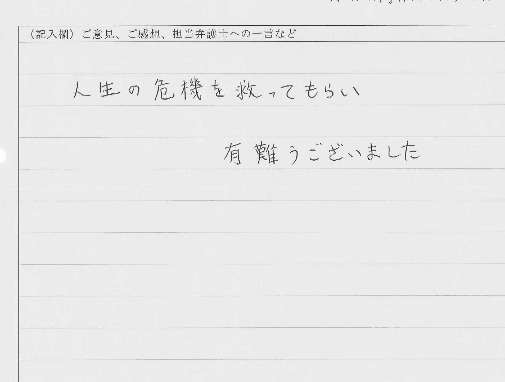 （記入欄）ご意見、ご感想、担当弁護士への一言など
人生の危機を救ってもらい
有難うございました